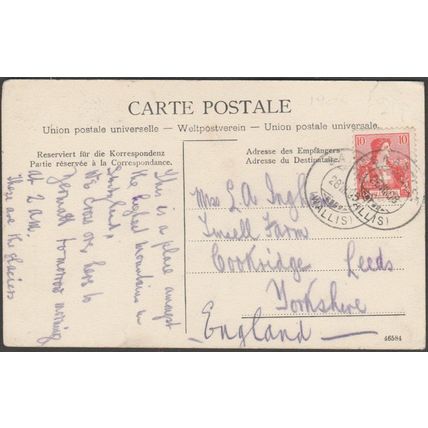 CARTE POSTALE
Union postale universelle – Weltpostverein – Union postale universale.
Reserviert für die Korrespondenz
Partie réservée à la Correspondance.
This is a place amongst
the highest mountains in
Switzerland,
We cross over here to
tomorrow morning
at 2 a.m.
These are the glaciers
Adresse des Empfängers
Adresse du Destinataire.
10 10
(WALLIS)
28
(WALLIS)
L A
Farm
Cookridge Leeds
Yorkshire
England
46584